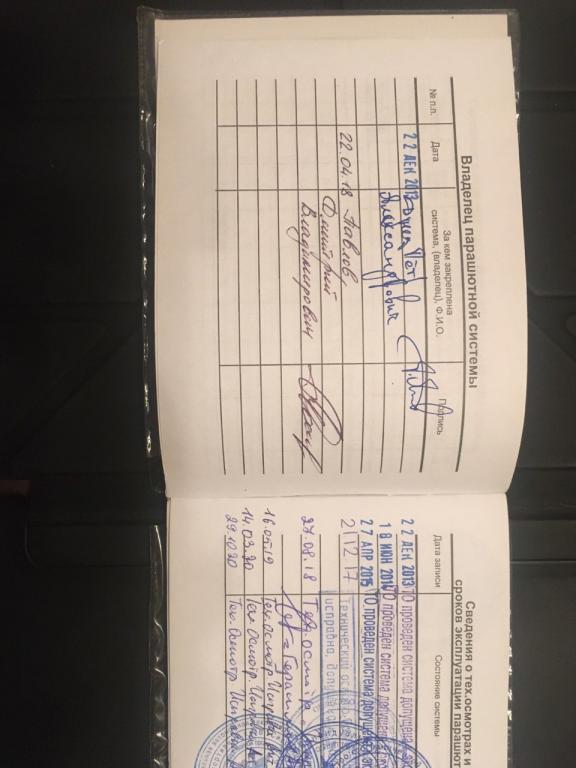 Владелец парашютной системы
№ п.п.
Дата
За кем закреплена
система, (владелец), Ф.И.О.
Подпись
22 ДЕК 2013
Александрович
22.04.18 Павлов
Дмитрий
Владимирович
Сведения о тех.осмотрах и
сроков эксплуатации парашют
Дата записи
Состояние системы
22 ДЕК 2013 ТО проведен система допущена
18 ИЮН 2014 ТО проведен система допущена
27 АПР 2015 ТО проведен система допущена
21 12 17 Технический осмотр
исправна, допущ
27.08.18 Тех. осмотр
16.05.19 Тех. осмотр Исправна
14.03.20 Тех. осмотр Исправна
29.10.20 Тех. осмотр Исправна